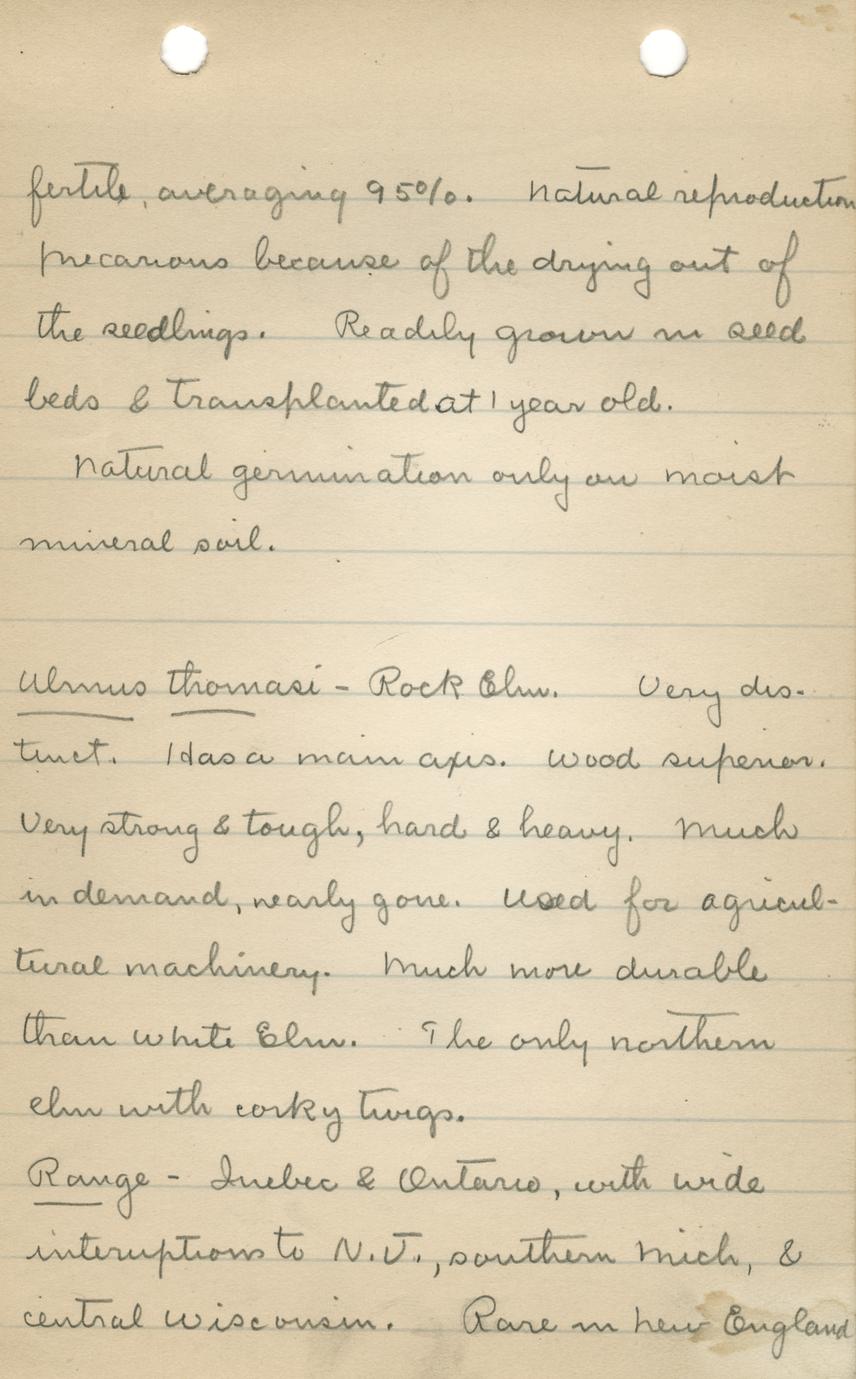 fertile, averaging 95%. Natural reproduction
precarious because of the drying out of
the seedlings. Readily grown in seed
beds & transplanted at 1 year old.
Natural germination only on moist
mineral soil.
Ulmus thomasi - Rock Elm. Very dis-
tinct. Has a main axis. Wood superior.
Very strong & tough, hard & heavy. Much
in demand, nearly gone. Used for agricul-
tural machinery. Much more durable
than White Elm. The only northern
elm with corky twigs.
Range - Quebec & Ontario, with wide
interuptions to N.J., southern Mich, &
central Wisconsin. Rare in New England